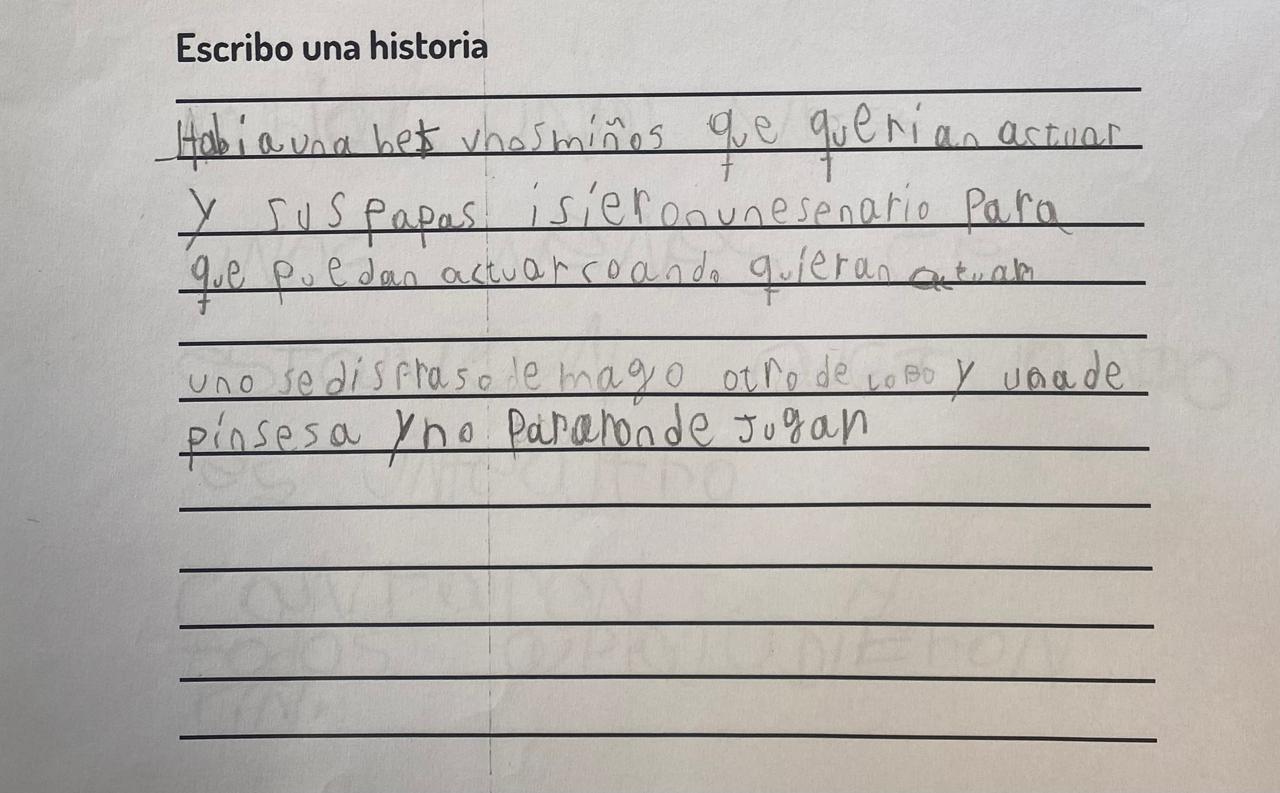 Escribo una historia
Habia una bes unosmiños que querian actuar
y sus papas isieronunesenario para
que puedan actuarcoando quieran actuam
uno sedisfraso de mago otro de LOBO y unade
pinsesa y no pararonde jugan